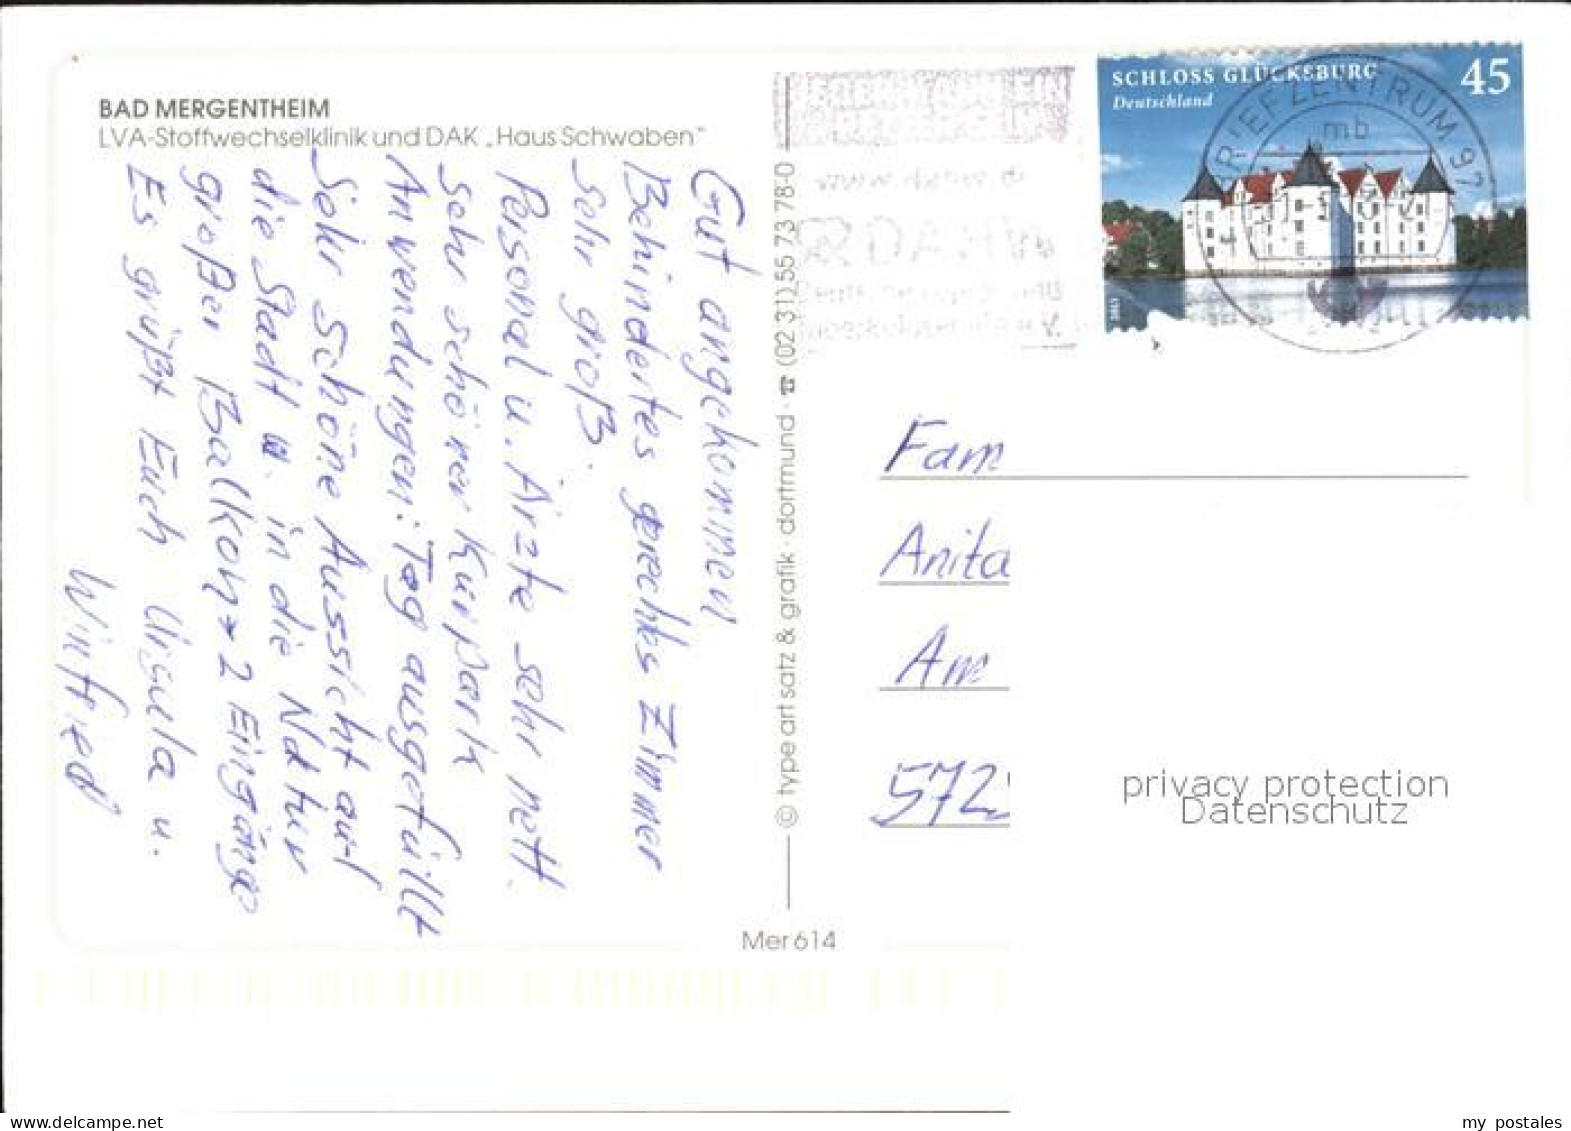 BAD MERGENTHEIM
LVA-Stoffwechselklinik und DAK „Haus Schwaben"
Gut angekommen
Behindertes gerechtes Zimmer
sehr groß.
Personal u. Ärzte sehr nett.
sehr schöner Kurpark
Anwendungen: Tag ausgefüllt
Sehr schöne Aussicht auf
die Stadt u. in die Natur
großer Balkon 2 Eingänge
Es grüßt Euch Ursula u.
Winfried
© type art satz & grafik · dortmund · ☎ (02 31) 55 73 78-0
Mer 614
SCHLOSS GLÜCKSBURG 45
Deutschland
2013
BRIEFZENTRUM 97
mb
Fam
Anita
Am
572
privacy protection
Datenschutz
www.delcampe.net
my_postales